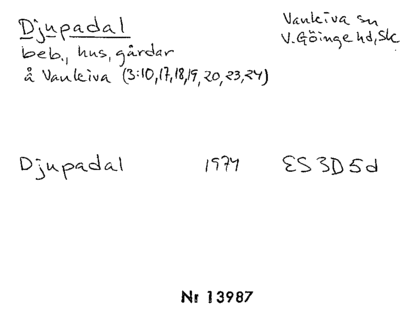 Djupadal
Vankiva sn
V. Göinge hd, Sk
beb., hus, gårdar
å Vankiva (3:10, 17, 18, 19, 20, 23, 24)
Djupadal 1974 ES 3D5d
Nr 13987